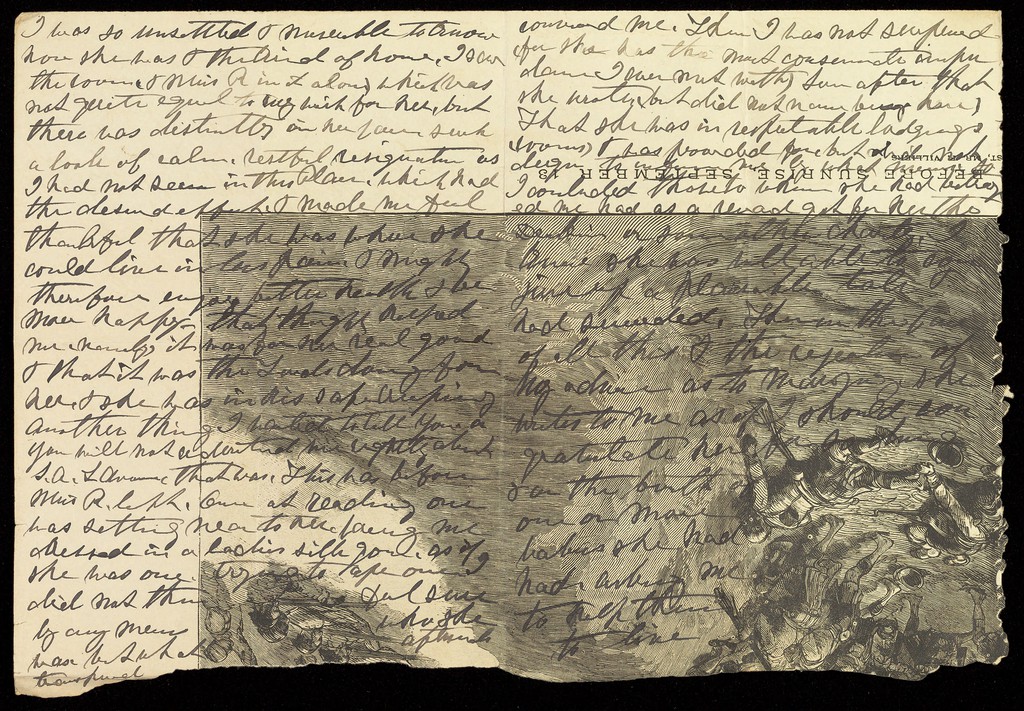 I was so unsettled & miserable to know
how she was & the kind of home, I saw
the room, & Miss R in it alone, which was
not quite equal to my wish for her, but
there was distinctly in her face such
a look of calm, restful resignation as
I had not seen in this place, which had
the desired effect, & made me feel
thankful that she was where she
could live in less pain & might
therefore enjoy better health & be
more happy. that thought helped
me namely it was for her real good
& that it was the Lords doing for
her, & she was in his safe keeping
another thing I wanted to tell you &
you will not understand me rightly about
that was. This was before
Miss R. left. Came at reading one
was setting near to her, facing me
dressed in a ladies silk gown, as if
she was one. trying to ape one I
did not then
who she
by any means
was but what
transpired
afterwards
convinced me. Then I was not surprised
for she has the most consummate impu
dence I ever met with, Soon after that
she wrote, but did not name being here,
That she was in respectable lodgings
rooms) & was provided for, but
I concluded those to whom she had betray
ed me had as a reward got for her the
BEFORE SUNRISE, SEPTEMBER 13
ST. MRS. VILLIERS
had succeeded. Then in the face
of all this & the repetition of
my advice as to marriage, she
writes to me as if I should con
gratulate her
for the birth of
one or more
babies she had
had, asking me
to help them
to live